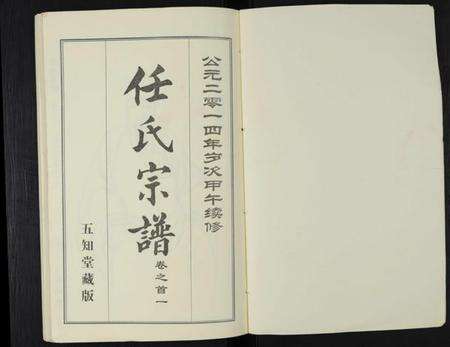 公元二零一四年岁次甲午续修
任氏宗譜
卷之首一
五知堂藏版